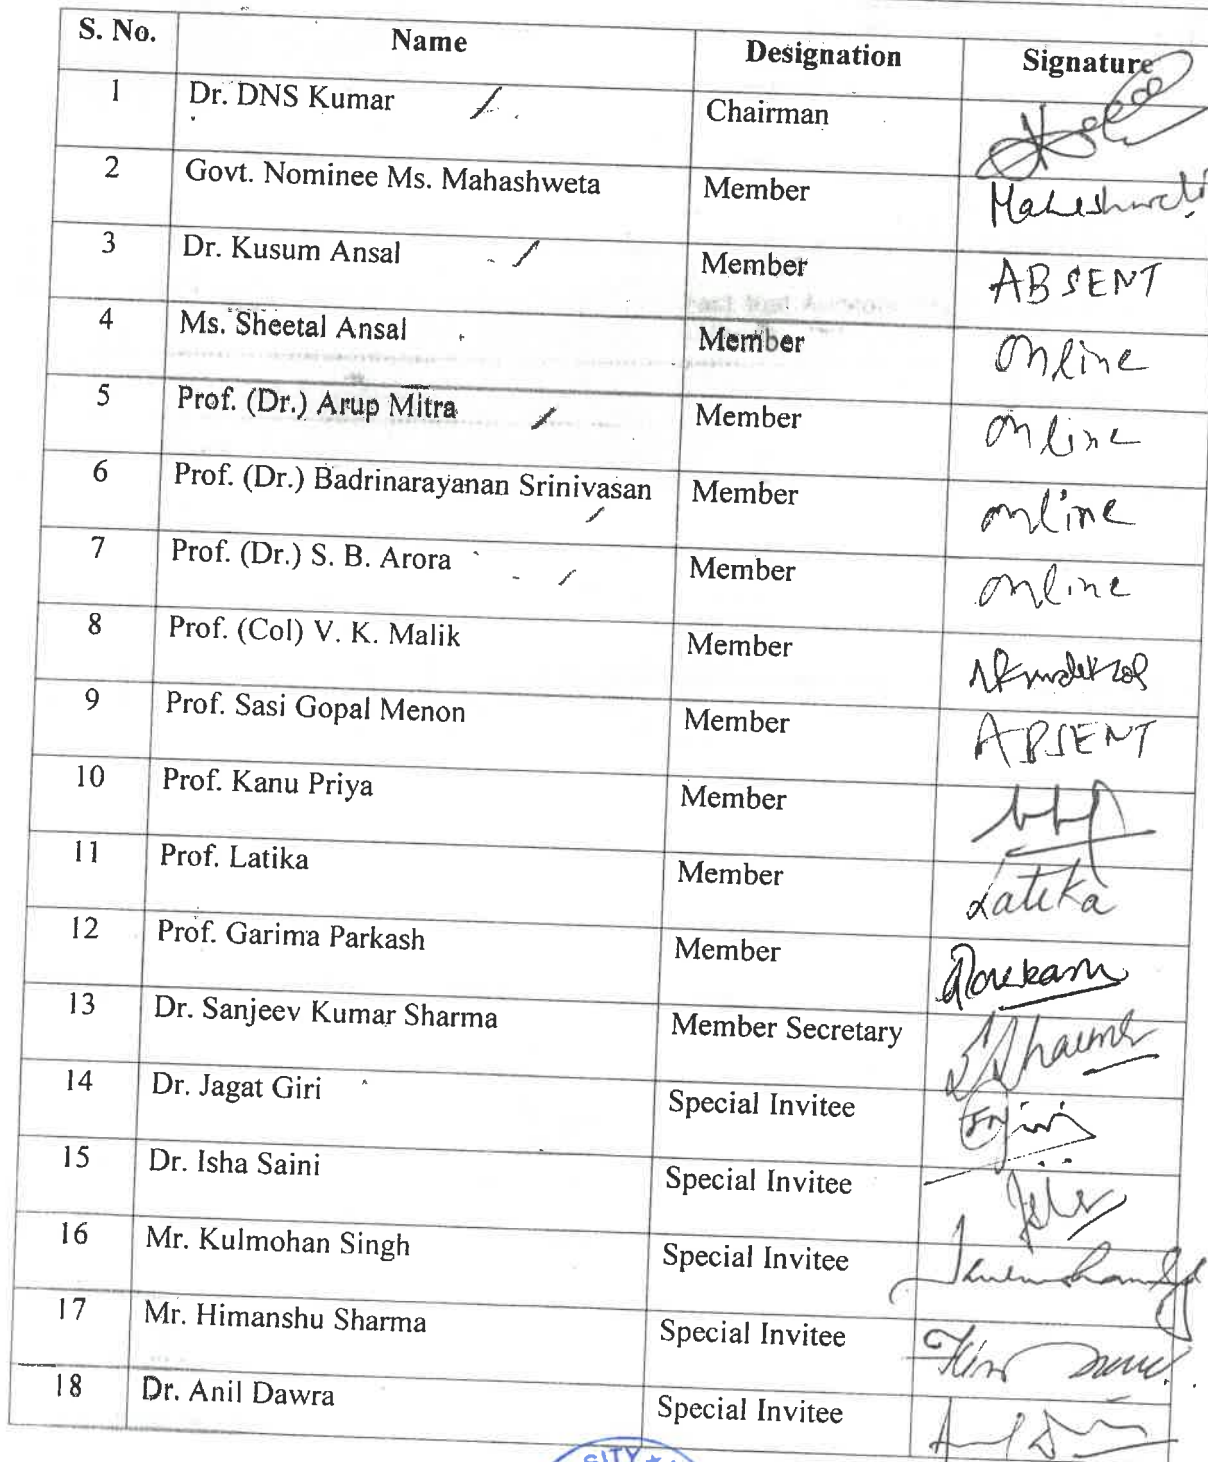 S. No. Name Designation Signature
1 Dr. DNS Kumar Chairman
2 Govt. Nominee Ms. Mahashweta Member
3 Dr. Kusum Ansal Member ABSENT
4 Ms. Sheetal Ansal Member Online
5 Prof. (Dr.) Arup Mitra Member Online
6 Prof. (Dr.) Badrinarayanan Srinivasan Member online
7 Prof. (Dr.) S. B. Arora Member online
8 Prof. (Col) V. K. Malik Member
9 Prof. Sasi Gopal Menon Member ABSENT
10 Prof. Kanu Priya Member
11 Prof. Latika Member Latika
12 Prof. Garima Parkash Member
13 Dr. Sanjeev Kumar Sharma Member Secretary
14 Dr. Jagat Giri Special Invitee
15 Dr. Isha Saini Special Invitee
16 Mr. Kulmohan Singh Special Invitee
17 Mr. Himanshu Sharma Special Invitee
18 Dr. Anil Dawra Special Invitee